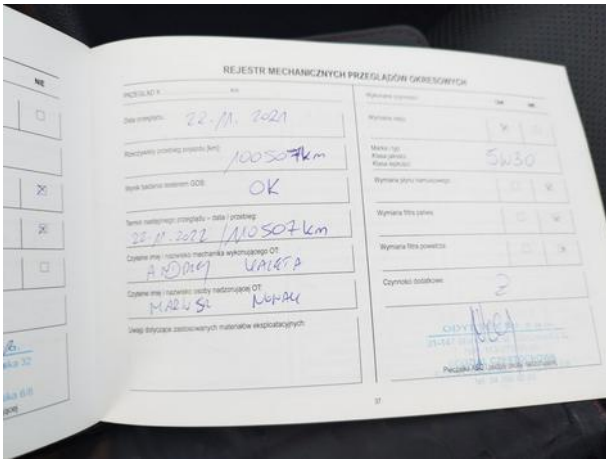 NIE
REJESTR MECHANICZNYCH PRZEGLĄDÓW OKRESOWYCH
PRZEGLĄD X
Data przeglądu:
22.11.2021
Rzeczywisty przebieg pojazdu [km]:
100507km
Wynik badania systemem OGB:
OK
Termin następnego przeglądu – data / przebieg:
22.11.2022 / 110507km
Czytelne imię i nazwisko mechanika wykonującego OT:
Czytelne imię i nazwisko osoby nadzorującej OT:
NOWAK
Uwagi dotyczące zastosowanych materiałów eksploatacyjnych
Wykonane czynności:
TAK NIE
Wymiana oleju
Marka i typ:
Klasa jakości:
Klasa lepkości:
5W30
Wymiana płynu hamulcowego
Wymiana filtra paliwa
Wymiana filtra powietrza
Czynności dodatkowe:
Pieczątka ASO i podpis osoby nadzorującej
37